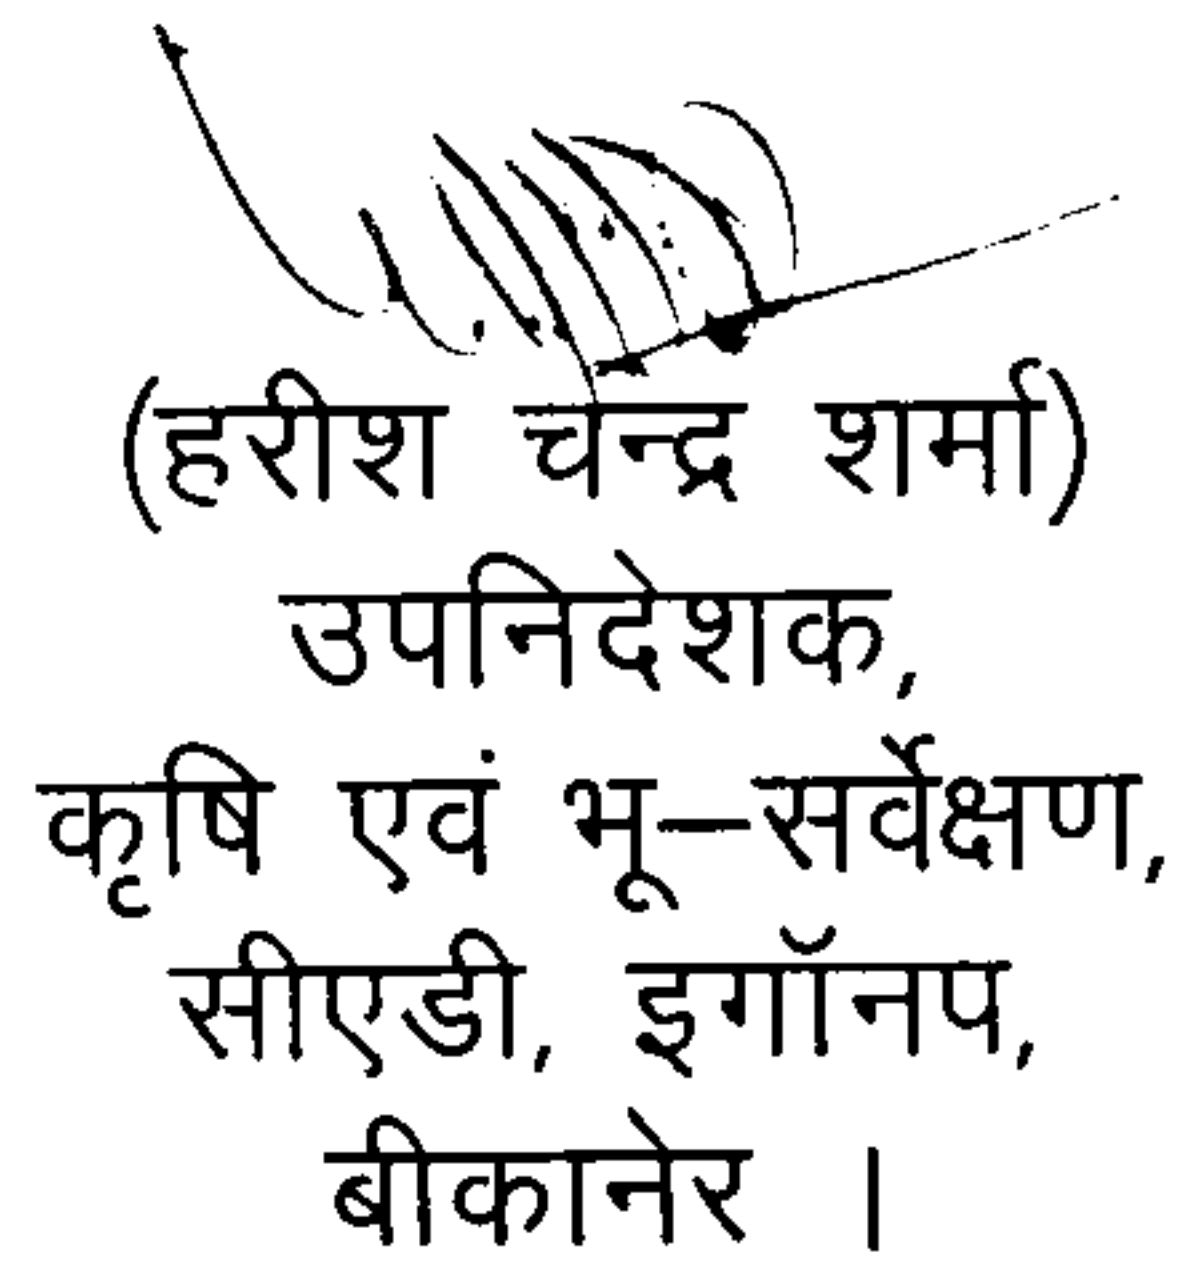 (हरीश चन्द्र शर्मा)
उपनिदेशक,
कृषि एवं भू–सर्वेक्षण,
सीएडी, इगॉनप,
बीकानेर ।